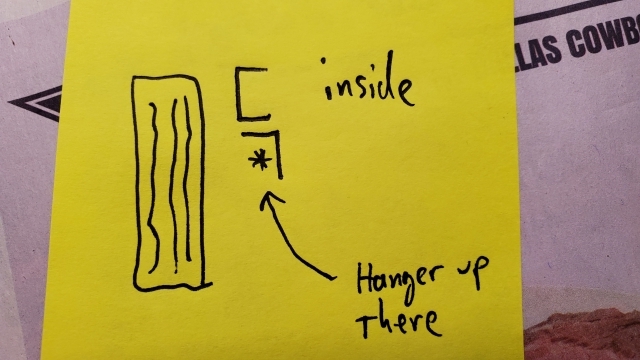 LLAS COWB
inside
*
Hanger up
There